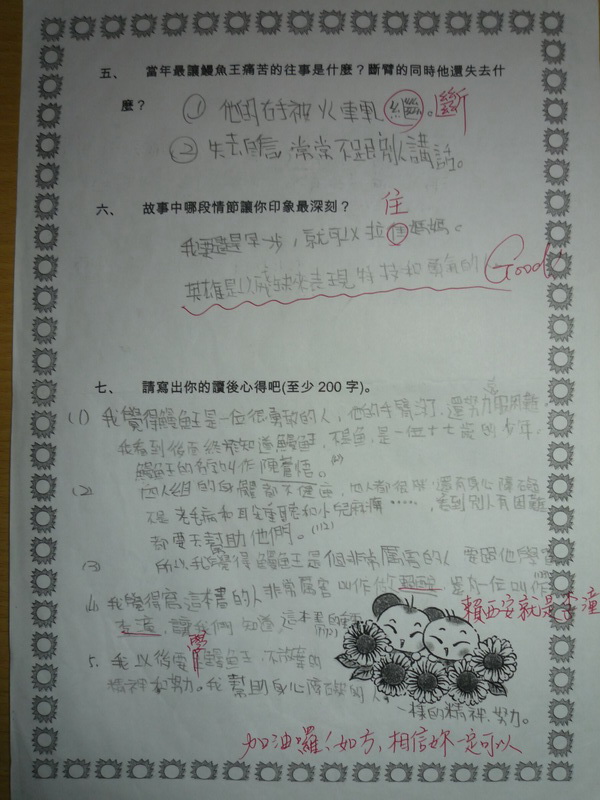 五、 當年最讓鰻魚王痛苦的往事是什麼？斷臂的同時他還失去什
麼？
① 他的右手被火車軋繼。斷
② 失去自信，常常不跟別人講話。
六、 故事中哪段情節讓你印象最深刻？
住
我要是早一步，就可以拉 媽媽。
英雄是以 來表現 和勇氣的 Good!
七、 請寫出你的讀後心得吧(至少 200 字)。
(1) 我覺得鰻魚王是一位很勇敢的人，他的手臂 了，還努力 困難
我看到後面終於知道鰻魚王，不是魚，是一位十七歲的少年，
鰻魚王的名字叫作陳
(2) 四人組的身體都不健康，四人都很 還有身心障礙
不是老毛病和耳朵重聽和小兒麻痺……，看到別人有困難
都要去幫助他們。(112)
(3) 所以我覺得鰻魚王是個非常厲害的人 要跟他學習
(4) 我覺得寫這本書的人非常厲害 叫作 是 一位叫作
賴西安就是李潼
李潼，讓我們知道這本書的
5. 我以後要 鰻魚王，不放棄的
精神和努力。我幫助身心障礙的人
一樣的精神、努力。
加油囉！如方，相信妳一定可以